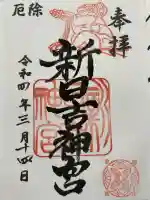 奉拝
厄除
新日吉神宮
令和四年三月十四日